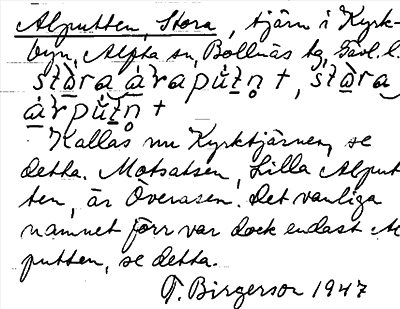 Alputten, Stora, tjärn i Kyrk-
byn, Alfta sn, Bollnäs tg, Gävl. l.
stòra àrapút̥n +, stòra
àrpút̥n +
Kallas nu Kyrktjärnen, se
detta. Motsatsen, Lilla Alput-
ten, är Överasen. Det vanliga
namnet förr var dock endast Al-
putten, se detta.
T. Birgerson 1947